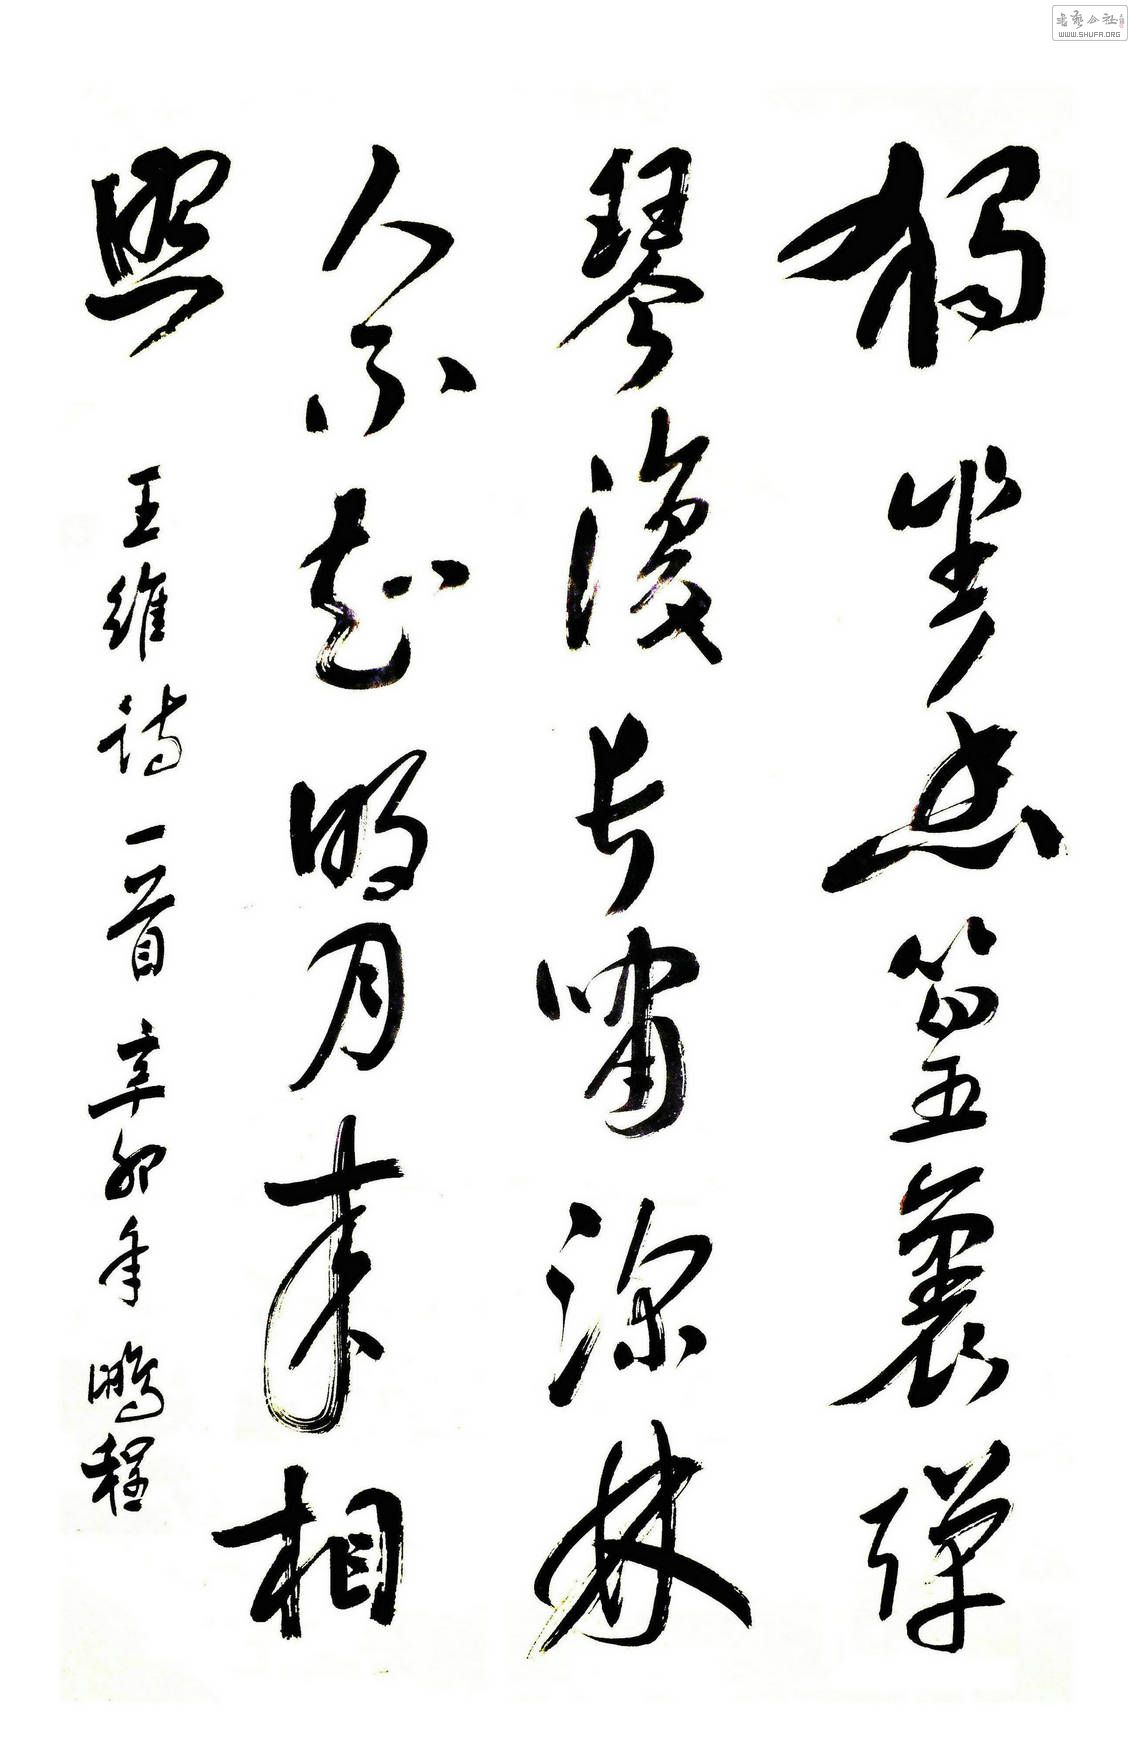 独坐幽篁裏弹
琴復长啸深林
人不知明月来相
照
王维诗一首 辛卯年 鹏程
书艺公社
WWW.SHUFA.ORG